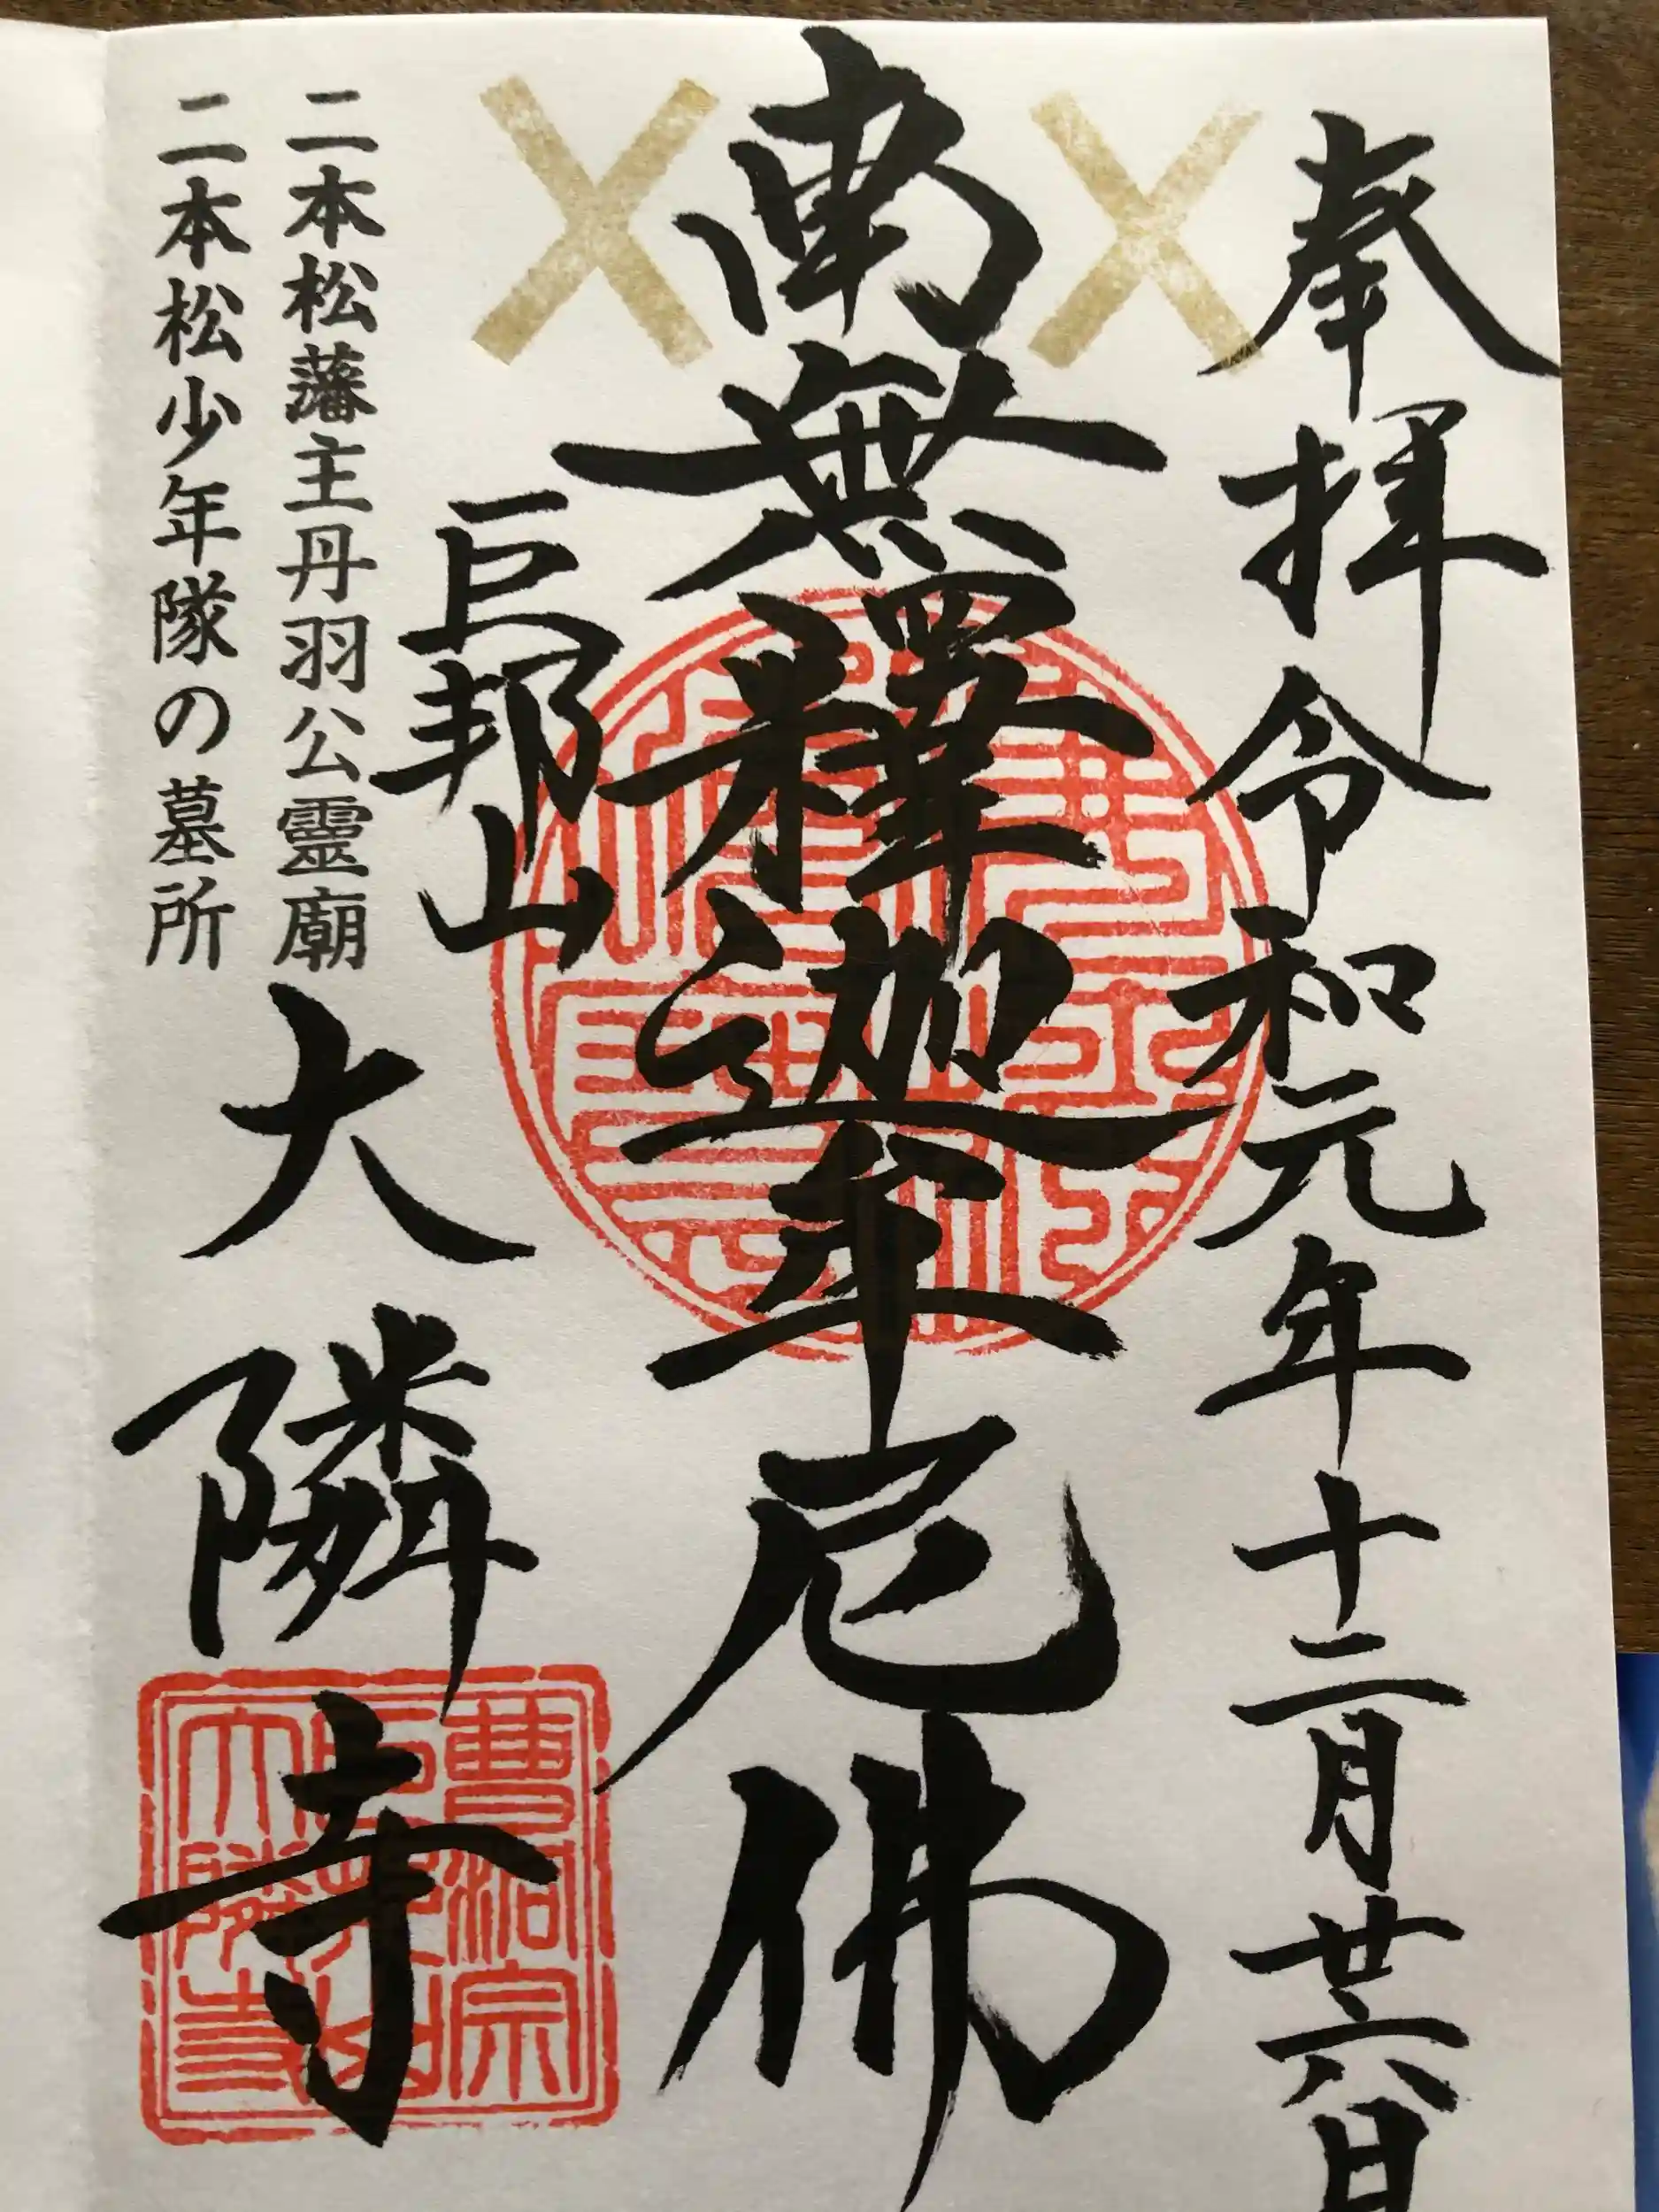 奉拝 令和元年十二月廿六日
南無釋迦牟尼佛
巨邦山
大隣寺
二本松藩主丹羽公靈廟
二本松少年隊の墓所
曹洞宗
巨邦山
大隣寺